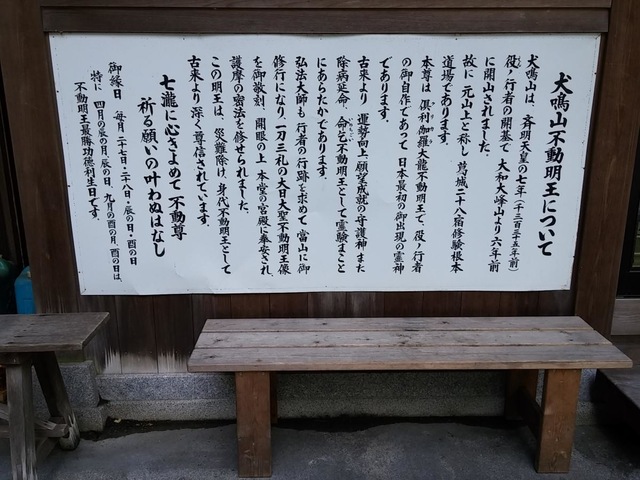 犬鳴山不動明王について
犬鳴山は、斉明天皇の七年(千三百三十五年前)
役ノ行者の開基で 大和大峰山より六年前
に開山されました。
故に 元山上と称し 葛城二十八宿修験根本
道場であります。
本尊は 倶利伽羅大龍不動明王で、役ノ行者
の御自作であって 日本最初の御出現の霊神
であります。
古来より 運勢向上、願望成就の守護神 また
除病延命、命乞不動明王として霊験まこと
にあらたかであります。
弘法大師も 行者の行跡を求めて 當山に御
修行になり、一刀三礼の大日大聖不動明王像
を御敬刻 開眼の上 本堂の宮殿に奉安され、
護摩の密法を修せられました。
この明王は、災難除け、身代不動明王として
古来より深く尊信されています。
七瀧に心きよめて 不動尊
祈る願いの叶わぬはなし
御縁日 毎月二十七日・二十八日・辰の日・酉の日
特に 四月の辰の月、辰の日、九月の酉の月、酉の日は、
不動明王最勝功徳利生日です。